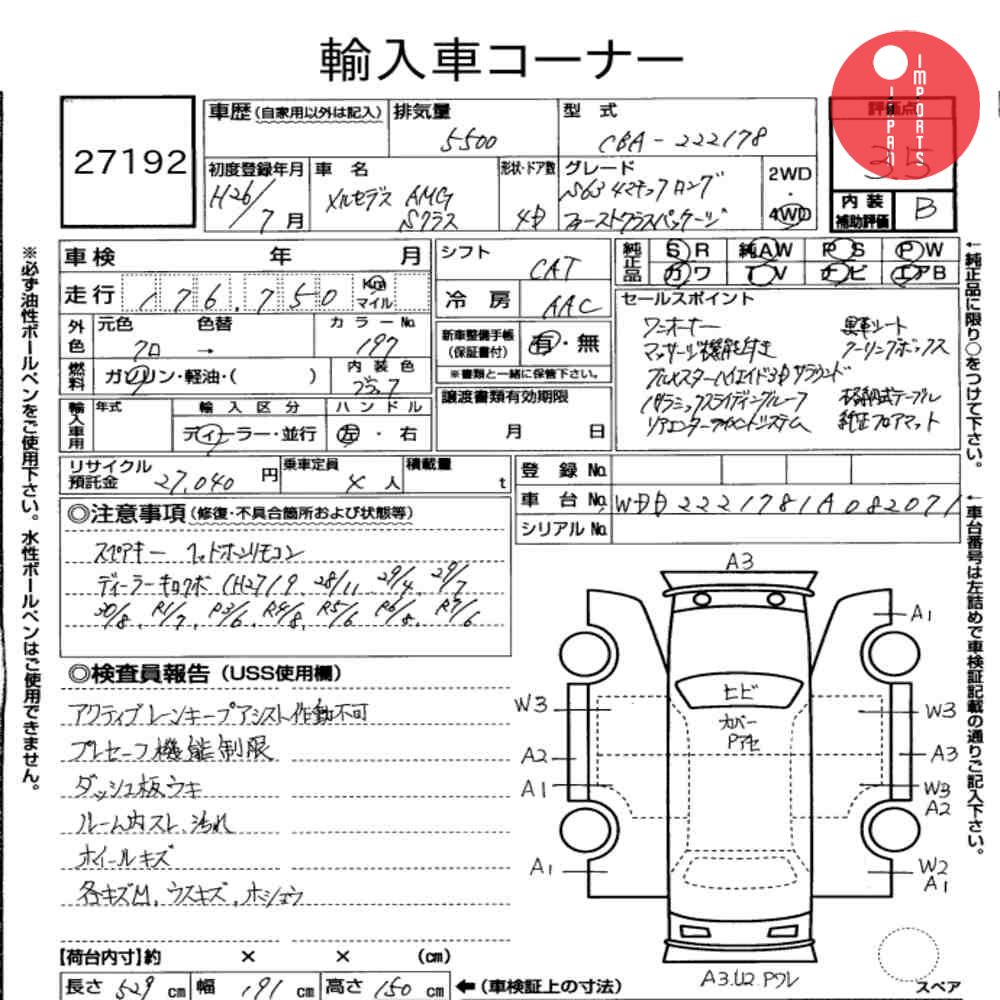 輸入車コーナー
IMPORTS
27192
車歴(自家用以外は記入)
排気量
5500
型式
CBA-222178
評価点
3.5
初度登録年月
H26/7月
車名
メルセデス AMG
Sクラス
形状・ドア数
4D
グレード
S63 4マチック ロング
ファーストクラスパッケージ
2WD
・
4WD
内装
補助評価
B
車検 年 月
走行 176,750 Km
マイル
外色
元色 色替 カラーNo.
クロ → 197
燃料
ガソリン・軽油・( )
内装色
輸入車用
年式
輸入区分
ディーラー・並行
ハンドル
左・右
シフト
CAT
冷房
AAC
新車整備手帳
(保証書付)
有・無
※書類と一緒に保管下さい。
譲渡書類有効期限
月 日
純正品
SR 純AW PS PW
カワ TV ナビ エアB
セールスポイント
ワンオーナー 黒革シート
マッサージ機能付き クーリングボックス
ブルメスターハイエンド3Dサラウンド
パノラミックスライディングルーフ 格納式テーブル
リアエンターテイメントシステム 純正フロアマット
リサイクル
預託金
27,040円
乗車定員
4人
積載量
t
登録No.
車台No.
WDD2221781A082071
シリアルNo.
◎注意事項(修復・不具合箇所および状態等)
スペアキー ヘッドホンリモコン
ディーラーキロクボ (H27/9, 28/11, 29/4, 29/7
30/8, R1/7, R3/6, R4/8, R5/6, R6/8, R7/6
◎検査員報告(USS使用欄)
アクティブレーンキープアシスト作動不可
プレセーフ機能制限
ダッシュ板ウキ
ルーム内スレ、汚れ
ホイールキズ
各キズM、ウスキズ、ホシュウ
【荷台内寸】約 × × (cm)
長さ 529 cm
幅 191 cm
高さ 150 cm
←(車検証上の寸法)
A3
A1
W3
A2
A1
A1
ヒビ
カバー
Pアセ
W3
A3
W3
A2
W2
A1
A3.U2 Pワレ
スペア
※必ず油性ボールペンをご使用下さい。水性ボールペンはご使用できません。
←純正品に限り○をつけて下さい。
←車台番号は左詰めで車検証記載の通りご記入下さい。